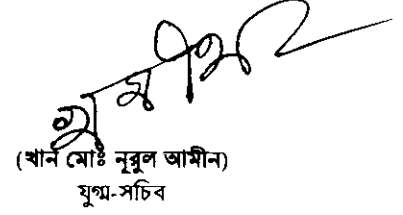 (খান মোঃ নূরুল আমীন)
যুগ্ম-সচিব